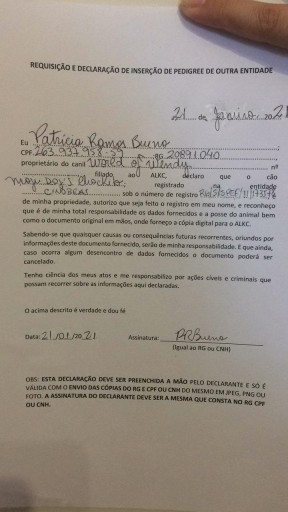 REQUISIÇÃO E DECLARAÇÃO DE INSERÇÃO DE PEDIGREE DE OUTRA ENTIDADE
21 de Janeiro 2021
Eu Patrícia Ramos Bueno
CPF RG 20891040
proprietário do canil World of Wendy nº
filiado ao ALKC, declaro que o cão
registrado na entidade
sob o número de registro
de minha propriedade, autorizo que seja feito o registro em meu nome, e reconheço
que é de minha total responsabilidade os dados fornecidos e a posse do animal bem
como o documento original em mãos, onde forneço a cópia digital para o ALKC.
Sabendo-se que quaisquer causas ou consequências futuras recorrentes, oriundos por
informações deste documento fornecido, serão de minha responsabilidade. E que ainda,
caso ocorra algum desencontro de dados fornecidos o documento poderá ser
cancelado.
Tenho ciência dos meus atos e me responsabilizo por ações cíveis e criminais que
possam recorrer sobre as informações aqui declaradas.
O acima descrito é verdade e dou fé
Data: 21/01/2021 Assinatura: PRBueno
(Igual ao RG ou CNH)
OBS: ESTA DECLARAÇÃO DEVE SER PREENCHIDA A MÃO PELO DECLARANTE E SÓ É
VÁLIDA COM O ENVIO DAS CÓPIAS DO RG E CPF OU CNH DO MESMO EM JPEG, PNG OU
FOTO. A ASSINATURA DO DECLARANTE DEVE SER A MESMA QUE CONSTA NO RG CPF
OU CNH.